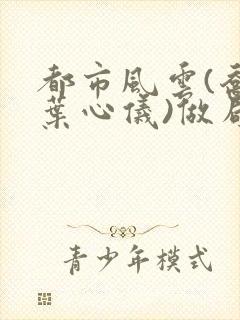 都市風雲(喬
葉心儀)做局
青少年模式